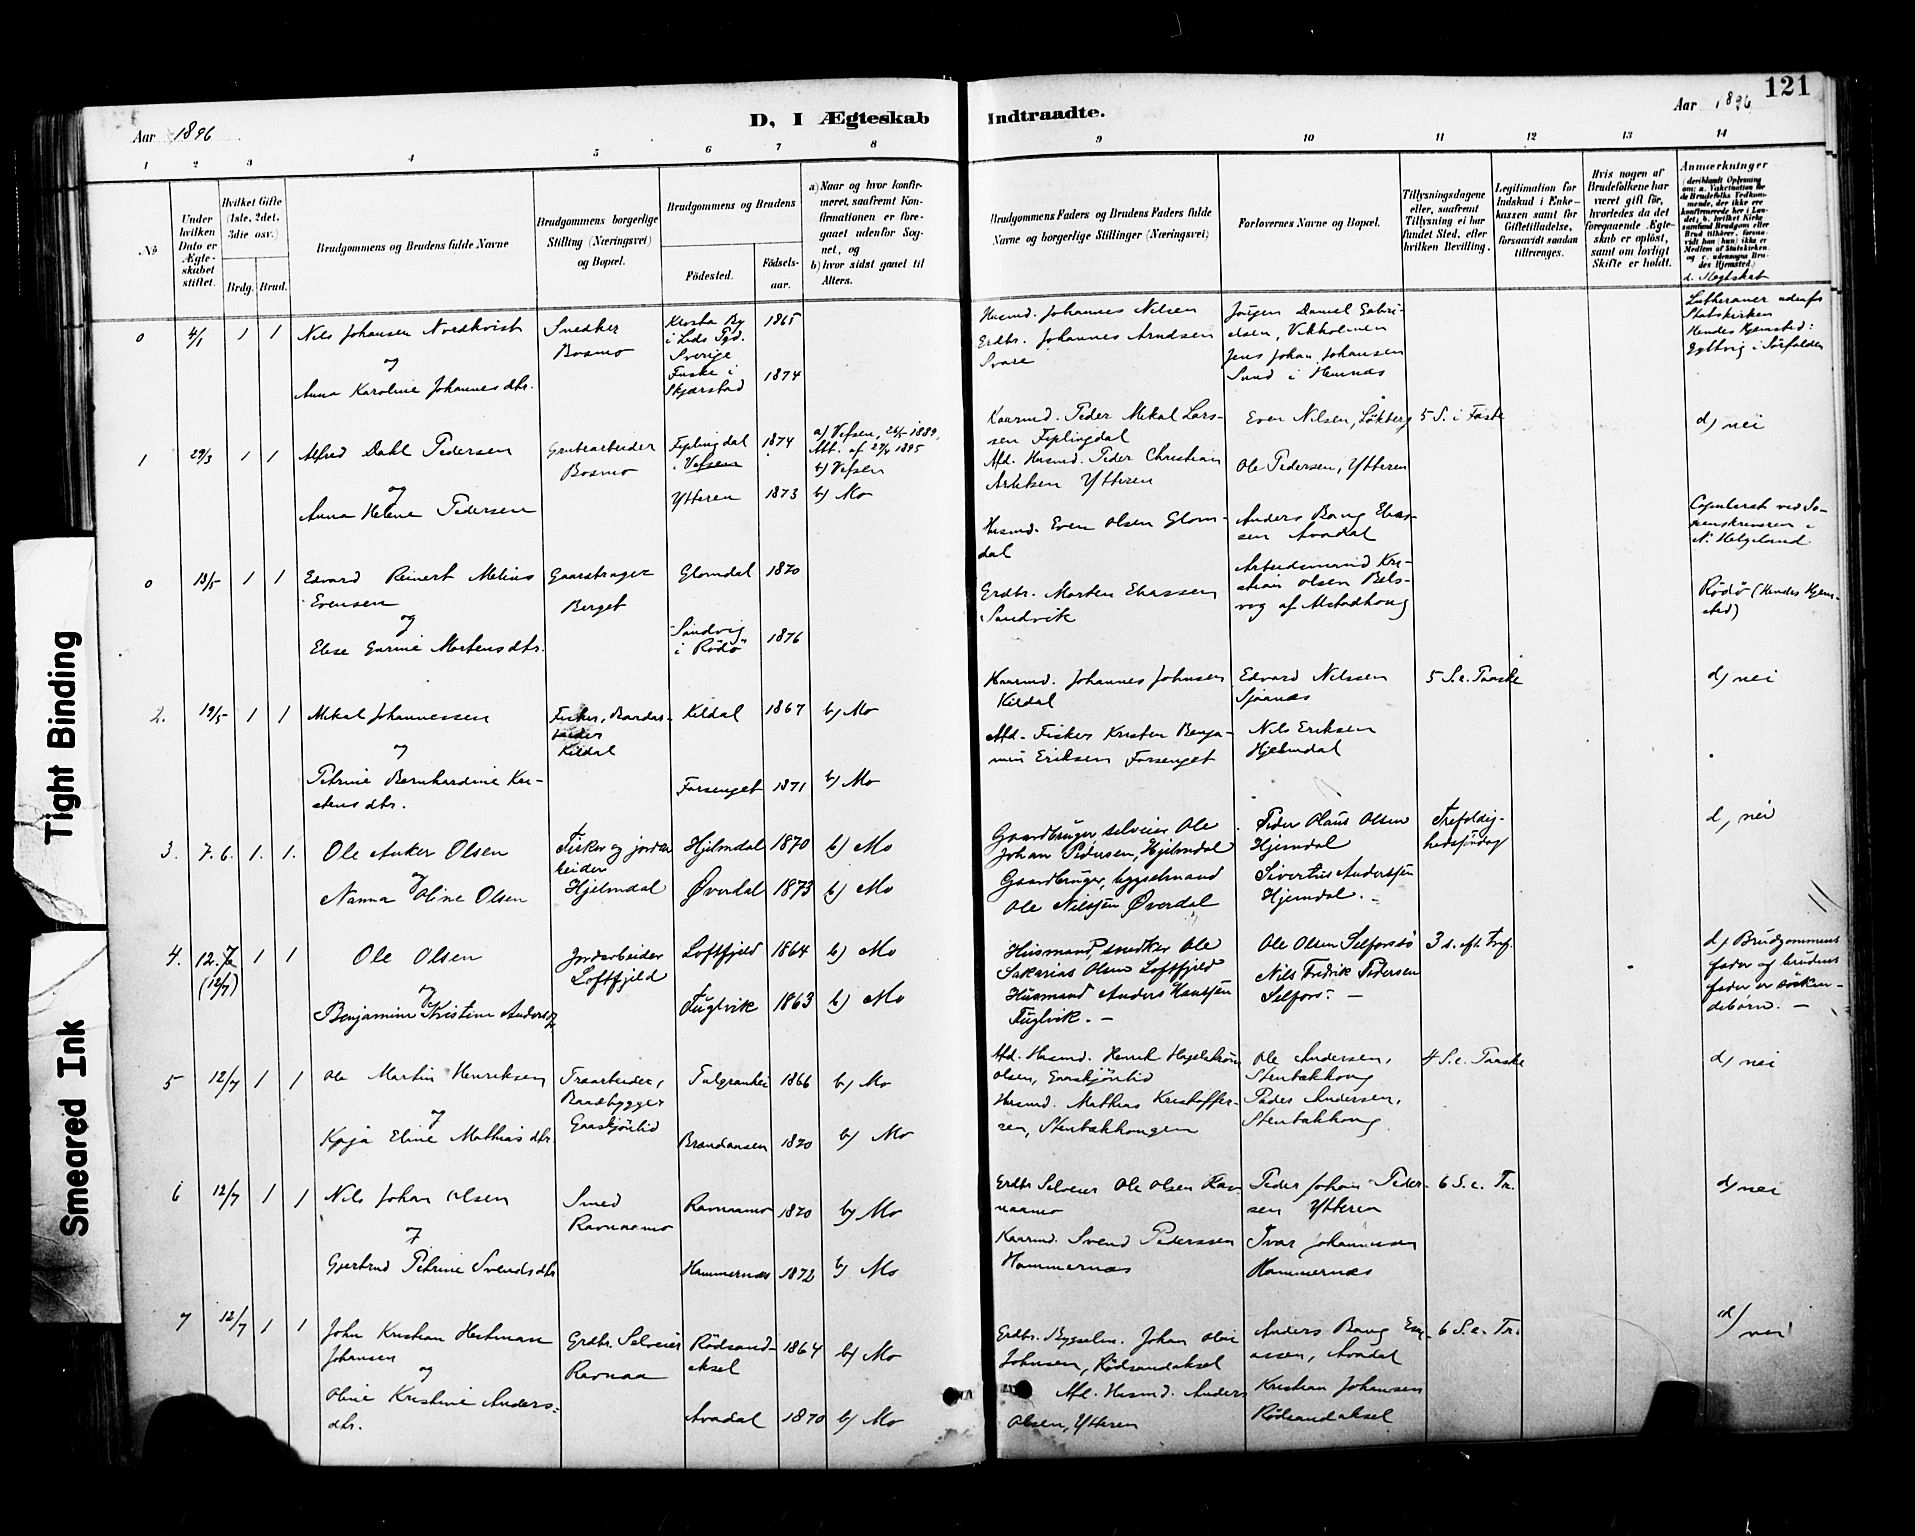 121
Aar 1896
D. I Ægteskab
Indtraadte.
Aar 1896
1 2 3 4 5 6 7 8
9 10 11 12 13 14
No
Under hvilken Dato er Ægteskabet stiftet.
Hvilket Gifte (1ste, 2det, 3die osv.)
Brdg. Brud.
Brudgommens og Brudens fulde Navne
Brudgommens borgerlige Stilling (Næringsvei) og Bopæl.
Brudgommens og Brudens
Födested.
Födselsaar.
a) Naar og hvor konfirmeret, saafremt Konfirmationen er foregaaet udenfor Sognet, og
b) hvor sidst gaaet til Alters.
Brudgommens Faders og Brudens Faders fulde Navne og borgerlige Stillinger (Næringsvei)
Forlovernes Navne og Bopæl.
Tillysningsdagene eller, saafremt Tillysning ei har fundet Sted, efter hvilken Bevilling.
Legitimation for Indskud i Enkekassen samt for Giftetilladelse, forsaavidt saadan tiltrænges.
Hvis nogen af Brudefolkene har været gift før, hvorledes da det foregaaende Ægteskab er opløst, samt om lovligt Skifte er holdt.
Anmærkninger
d. Slegtskab
0 4/1 1 1 Nils Johansen Nordkvist
og
Anna Karoline Johannesdtr.
Snedker
Bosmo
i Lids Pgd.
Sverige
Fuske i
Skjærstad
1865
1874
Husmd. Johannes Nilsen
Grdbr. Johannes Arndsen
Svare
Jörgen Daniel Gabri-
elsen, Vikholmen
Jens Johan Johansen
Sund i Hemnæs
Lutheraner udenfor
Statskirken
Hendes Hjemsted:
i Sörfolden
1 29/3 1 1 Alfred Dahl Pedersen
og
Anna Helene Pedersen
Grubearbeider
Bosmo
Fiplingdal
i Vefsen
Ytteren
1874
1873
a) Vefsen,
Att. af 1895
b) Vefsen
b) Mo
Kaarmd. Peder Mikal Lars-
sen Fiplingdal
Afd. Husmd. Peder Christian
Ytteren
Even Nilsen, Lökberg
Ole Pedersen, Ytteren
5 S. i Faste
d) nei
0 13/5 1 1 Edvard Reinert Melius
Evensen
og
Elise Gurine Mortensdtr.
Berget
Glomdal
Sandvig
i Rödö
1870
1876
Husmd. Even Olsen Glom-
dal
Grdbr. Morten Eliassen
Sandvik
Anders Bang Elias-
sen Avadal
Arbeidsmand Kri-
stian Olsen Bels-
vog af Alstadhoug
Copuleret ved So-
renskriveren i
N. Helgeland
Rödö (Hendes Hjem-
sted)
2. 19/5 1 1 Mikal Johannessen
og
Petrine Bernhardine Kri-
stensdtr.
Fisker, Baadar-
beider
Kildal
Kildal
Forsenget
1867
1871
b) Mo
b) Mo
Kaarmd. Johannes Johnsen
Kildal
Afd. Fisker Kristen Benja-
min Eriksen Forsenget
Edvard Nilssen
Sjoanæs
Nils Eriksen
Hjelmdal
5 S. e. Paaske
d) nei
3. 7.6. 1. 1. Ole Anker Olsen
og
Nanna Oline Olsen
Fisker og jordar
beider
Hjelmdal
Hjelmdal
Øverdal
1870
1873
b) Mo
b) Mo
Gaardbruger, selveier Ole
Johan Pedersen, Hjelmdal
Gaardbruger, bygselmand
Ole Nilssen Øverdal
Peder Olaus Olsen
Hjemdal
Sivertus Anderssen
Hjemdal. -
Trefoldig-
hedssöndag
d) nei
4. 12.7
(12/7) 1 1 Ole Olsen
og
Benjamine Kristine Andersdtr
Jordarbeider
Loftfjeld
Loftfjeld
Fuglvik
1864
1863
b) Mo
b) Mo
Husmand, snedker Ole
Sakarias Olsen Loftfjeld
Husmand Anders Hanssen
Fuglvik. -
Ole Olsen Selforsö
Nils Fredrik Pedersen
Selfors. -
3 s. eft. Tref.
d) Brudgommens
fader og brudens
fader er södsken-
debörn. -
5 12/7 1 1 Ole Martin Henriksen
og
Kaja Eline Mathiasdtr.
Træarbeider,
Baadbygger
Gaaskjönlid
Brændaasen
1866
1870
b) Mo
b) Mo
Afd. Husmd. Henrik Hagelstrøm
Olsen, Gaaskjönlid
Husmd. Mathias Kristoffer-
sen, Stenbækhougen
Ole Andersen,
Stenbækhoug
Peder Andersen,
Stenbækhoug.
4 S. e. Paaske
d) nei
6 12/7 1 1 Nils Johan Olsen
og
Gjertrud Petrine Svendsdtr
Smed
Ravnaamo
Ravnaamo
Hammernæs
1870
1872
b) Mo
b) Mo
Grdbr. Selveier Ole Olsen Rav-
naamo
Kaarmd. Svend Pederssen
Hammernæs
Peder Johan Peder-
sen Ytteren
Ivar Johannessen
Hammernæs
6 S. e. Tr.
d) nei
7 12/7 1 1 John Kristian Hestman
Johansen
og
Oline Kristine Anders-
dtr.
Grdbr. Selveier
Ravnaa
Rödsand-
aksel
Avadal
1864
1870
b) Mo
b) Mo
Grdbr. Bygselm. Johan Olai
Johnsen, Rödsandaksel
Afd. Husmd. Anders
Olsen, Ytteren
Anders Bang Eli-
assen, Avadal
Kristian Johansen
Rödsandaksel
6 S. e. Tr.
d) nei
Tight Binding
Smeared Ink